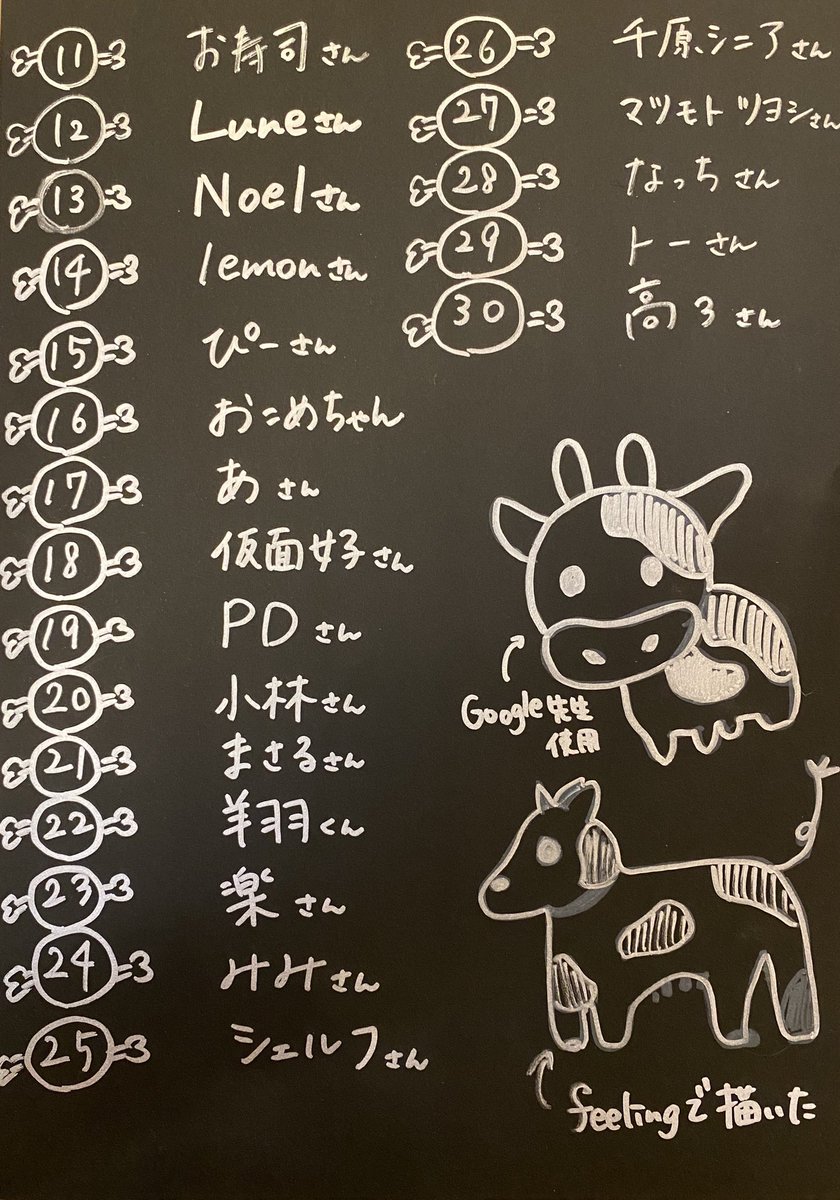 11 お寿司さん
12 Luneさん
13 Noelさん
14 lemonさん
15 ぴーさん
16 おこめちゃん
17 あさん
18 仮面女子さん
19 PDさん
20 小林さん
21 まさるさん
22 羊羽くん
23 楽さん
24 みみさん
25 シェルフさん
26 千原シニアさん
27 マツモトツヨシさん
28 なっちさん
29 トーさん
30 高3さん
Google先生
使用
feelingで描いた